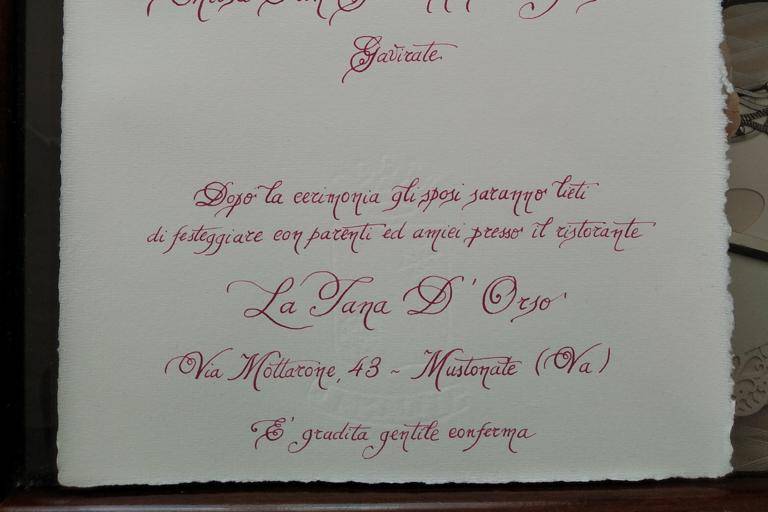 Gavirate
Dopo la cerimonia gli sposi saranno lieti
di festeggiare con parenti ed amici presso il ristorante
La Tana D'Orso
Via Mottarone, 43 ~ Mustonate (Va)
E' gradita gentile conferma